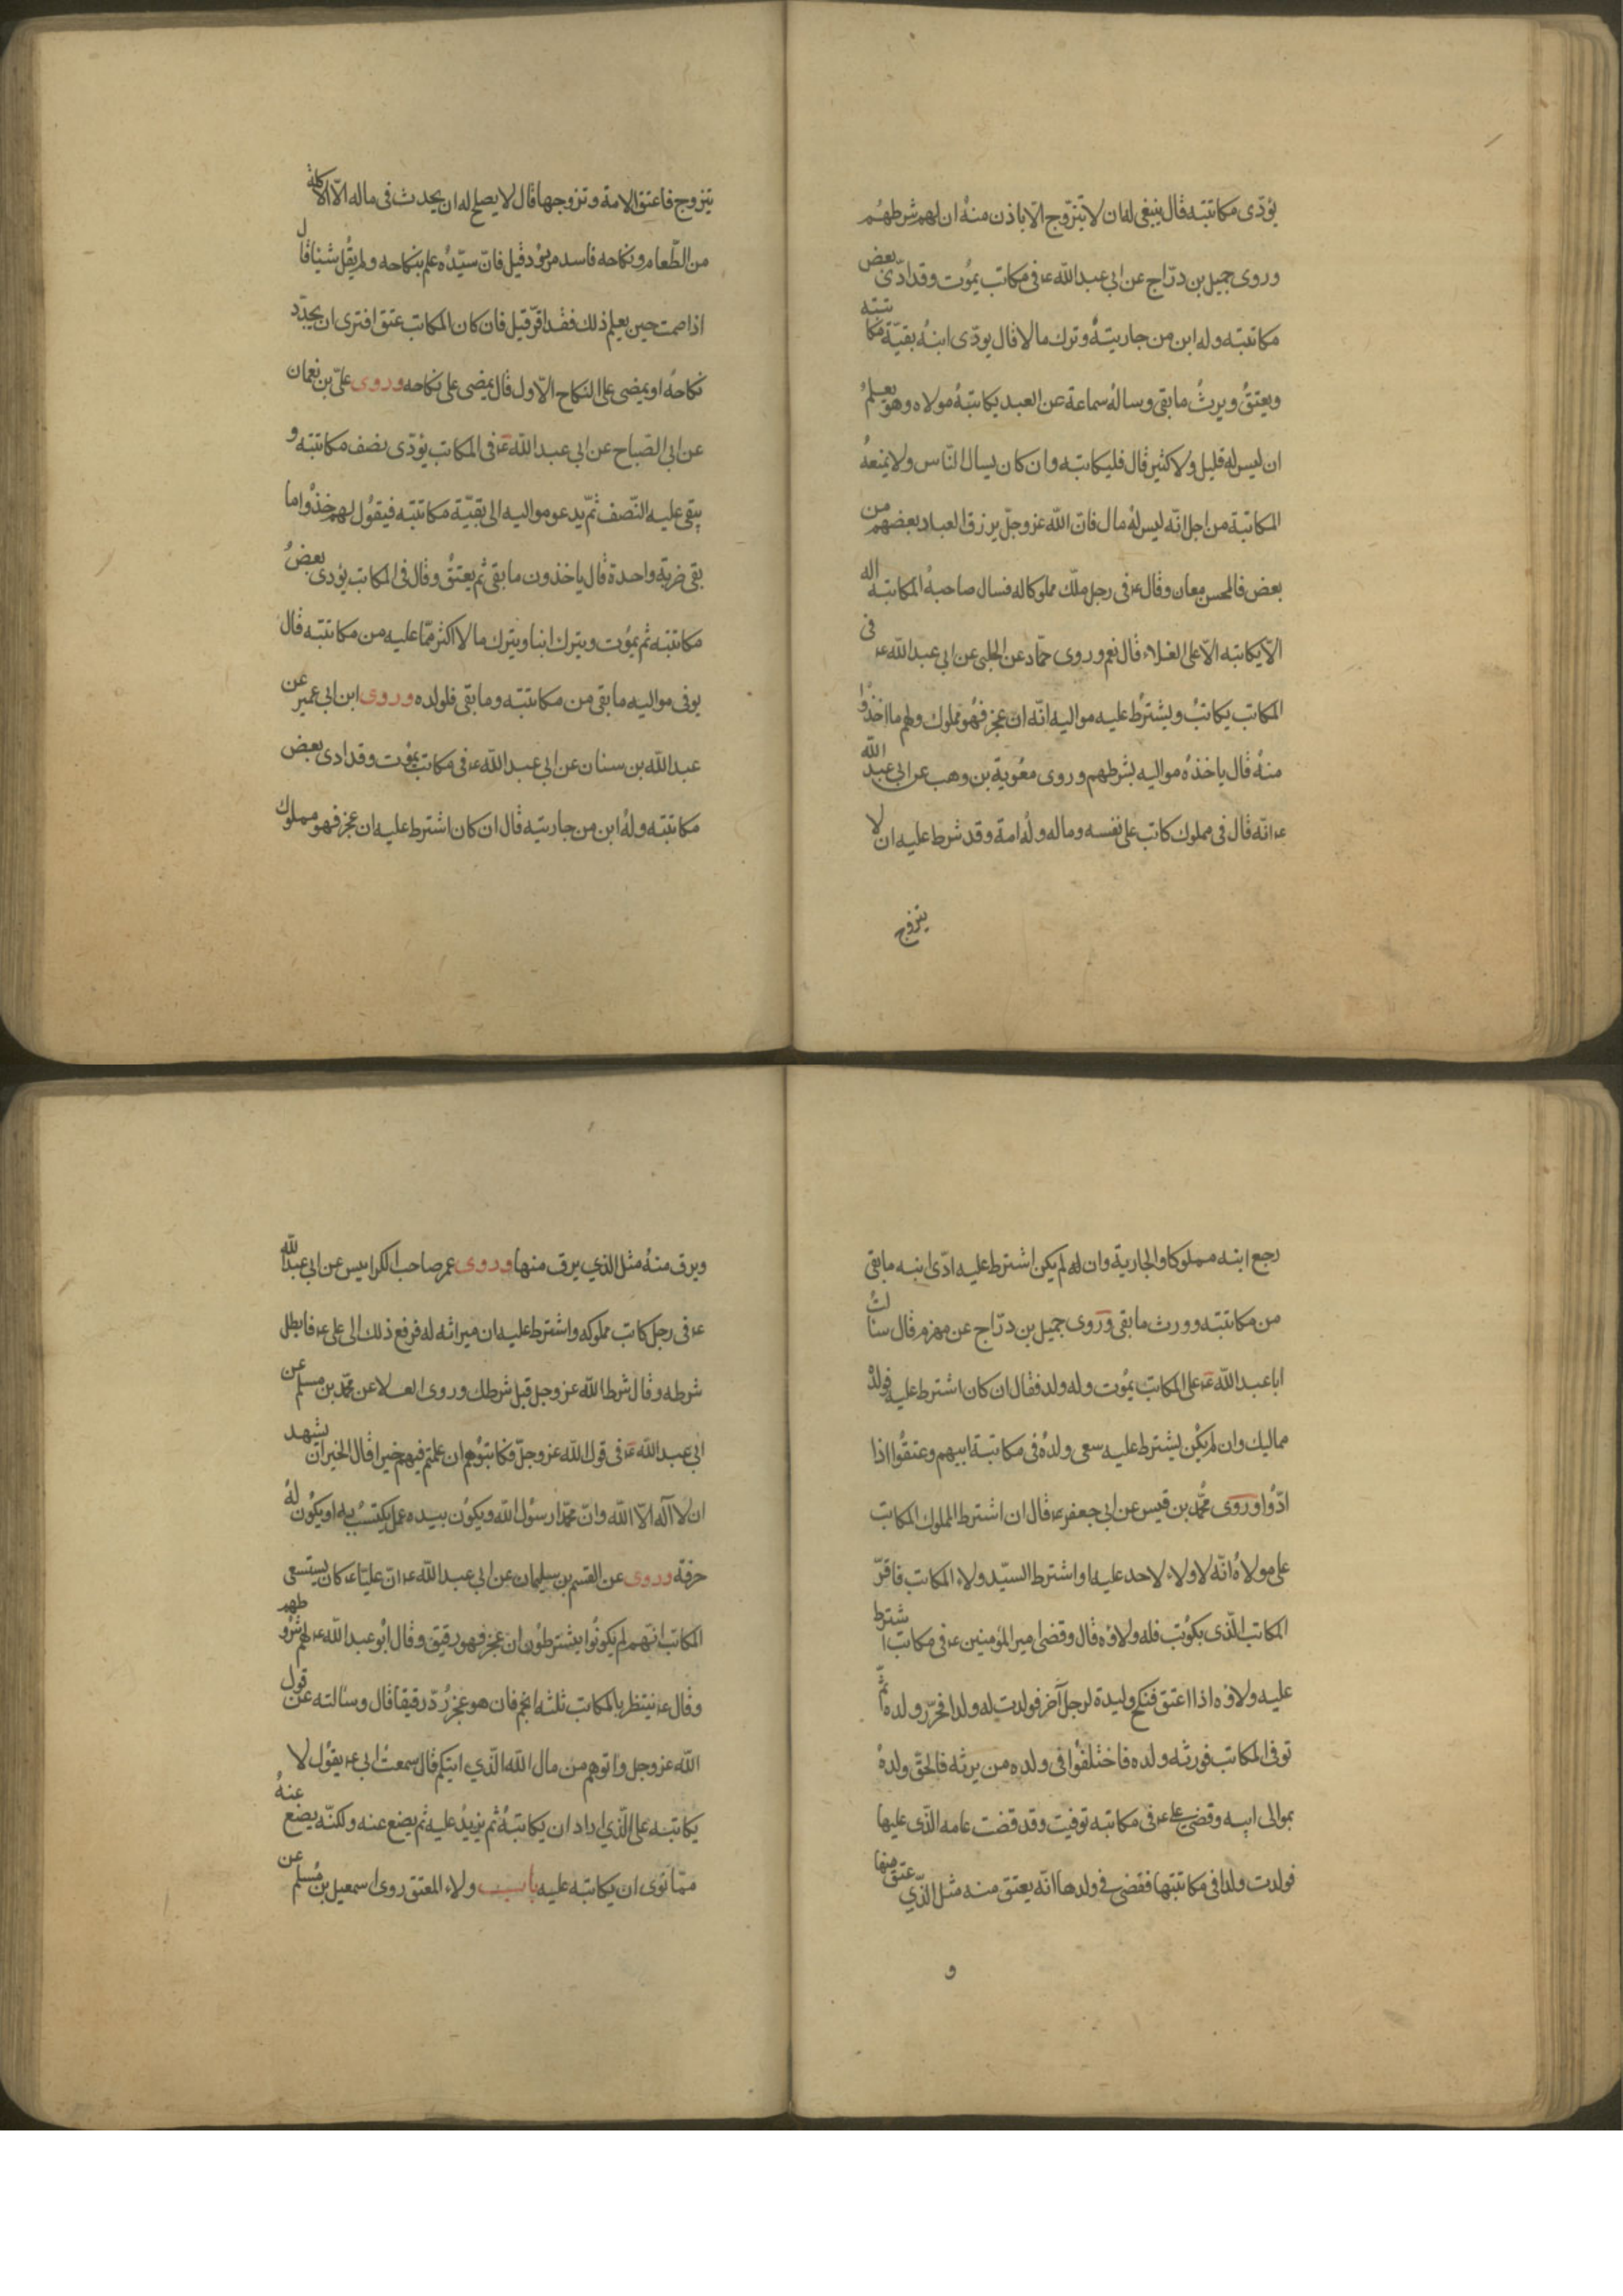 يؤدى مكاتبته قال ينبغى له ان لا يتزوج الا باذن منه ان لهم شرطهم
وروى جميل بن درّاج عن ابي عبد الله ع‍ فى مكاتب يموت وقد ادّى بعض
مكاتبته وله ابن من جاريته وترك مالا قال يودّى ابنه بقيّة مكاتبته
ويعتق ويرث ما بقى وساله سماعة عن العبد يكاتبه مولاه وهو يعلم
ان ليس له قليل ولا كثير قال فليكاتبه وان كان يسال النّاس ولا يمنعه
المكاتبة من اجل انّه ليس له مال فانّ الله عز وجلّ يرزق العباد بعضهم من
بعض فالمحسن معان وقال ع‍ فى رجل ملّك مملوكا له فسال صاحبه المكاتبة اله
الّا يكاتبه الّا على الغلاء قال نعم وروى حمّاد عن الحلبى عن ابى عبد الله ع‍ فى
المكاتب يكاتب ويشترط عليه مواليه انّه ان عجز فهو مملوك ولهم ما اخذوا
منه قال ياخذه مواليه بشرطهم وروى معوية بن وهب عن ابى عبد الله
ع‍ انّه قال فى مملوك كاتب على نفسه وماله وله امة وقد شرط عليه ان لا
يتزوج
يتزوج فاعتق الامة وتزوجها قال لا يصلح له ان يحدث فى ماله الّا الاكلة
من الطّعام ونكاحه فاسد مردود قيل فانّ سيّده علم بنكاحه ولم يقل شيئا قال
اذا صمت حين يعلم ذلك فقد اقرّ قيل فان كان المكاتب عتق افترى ان يجدّد
نكاحه او يمضى على النكاح الاول قال يمضى على نكاحه وروى علىّ بن نعمان
عن ابى الصّباح عن ابي عبد الله ع‍ فى المكاتب يؤدّى نصف مكاتبته و
يبقى عليه النّصف ثمّ يدعو مواليه الى بقيّة مكاتبته فيقول لهم خذوا ما
بقى ضربة واحدة قال ياخذون ما بقى ثم يعتق وقال فى المكاتب يؤدى بعض
مكاتبته ثم يموت ويترك ابنا ويترك مالا اكثر ممّا عليه من مكاتبته قال
يوفى مواليه ما بقى من مكاتبته وما بقى فلولده وروى ابن ابى عمير عن
عبد الله بن سنان عن ابى عبد الله ع‍ فى مكاتب يموت وقد ادى بعض
مكاتبته وله ابن من جاريته قال ان كان اشترط عليه ان عجز فهو مملوك
رجع ابنه مملوكا والجارية وان له لم يكن اشترط عليه ادّى ابنه ما بقى
من مكاتبته وورث ما بقى وروى جميل بن درّاج عن مهزم قال سالت
ابا عبد الله ع‍ على المكاتب يموت وله ولد فقال ان كان اشترط عليه فولده
مماليك وان لم يكن يشترط عليه سعى ولده فى مكاتبة ابيهم وعتقوا اذا
ادّوا وروى محمّد بن قيس عن ابى جعفر ع‍ قال ان اشترط المملوك المكاتب
على مولاه انّه لا ولاء لاحد عليه او اشترط السيّد ولاء المكاتب فاقرّ
المكاتب الّذى يكوتب فله ولاؤه قال وقضى امير المؤمنين ع‍ فى مكاتب اشترط
عليه ولاؤه اذا اعتق فنكح وليدة لرجل آخر فولدت له ولدا فحرّر ولده ثمّ
توفى المكاتب فورثه ولده فاختلفوا فى ولده من يرثه فالحق ولده
بموالى ابيه وقضى على ع‍ فى مكاتبه توفيت وقد قضت عامه الّذى عليها
فولدت ولدا فى مكاتبتها فقضى فى ولدها انّه يعتق منه مثل الّذي عتق منها
و
ويرق منه مثل الذي يرق منها وروى عمر صاحب الكرابيس عن ابى عبد الله
ع‍ فى رجل كاتب مملوكه واشترط عليه ان ميراثه له فرفع ذلك الى على ع‍ فابطل
شرطه وقال شرط الله عز وجل قبل شرطك وروى العلا عن محمّد بن مسلم عن
ابى عبد الله ع‍ فى قول الله عز وجلّ فكاتبوهم ان علمتم فيهم خيرا قال الخير ان يشهد
ان لا آله الّا الله وانّ محمّدا رسول الله ويكون بيده عمل يكتسب به او يكون له
حرفة وروى عن القسم بن سليمان عن ابى عبد الله ع‍ انّ عليّا ع‍ كان يستسعى
المكاتب انهم لم يكونوا يشترطون ان عجز فهو رقيق وقال ابو عبد الله ع‍ لهم شروطهم
وقال ع‍ ينتظر بالمكاتب ثلثه انجم فان هو عجز ردّ رقيقا قال وسالته عن قول
الله عز وجل واتوهم من مال الله الّذي اتيكم قال سمعت ابى ع‍ يقول لا
يكاتبه على الّذي اراد ان يكاتبه ثم يزيد عليه ثم يضع عنه ولكنّه يضع عنه
ممّا نوى ان يكاتبه عليه باب ولاء المعتق روى اسمعيل بن مسلم عن